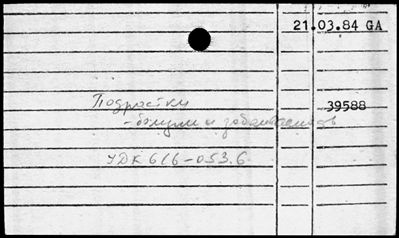 21.03.84 GA
Подростки 39588
- болезни и
УДК 616-053.6